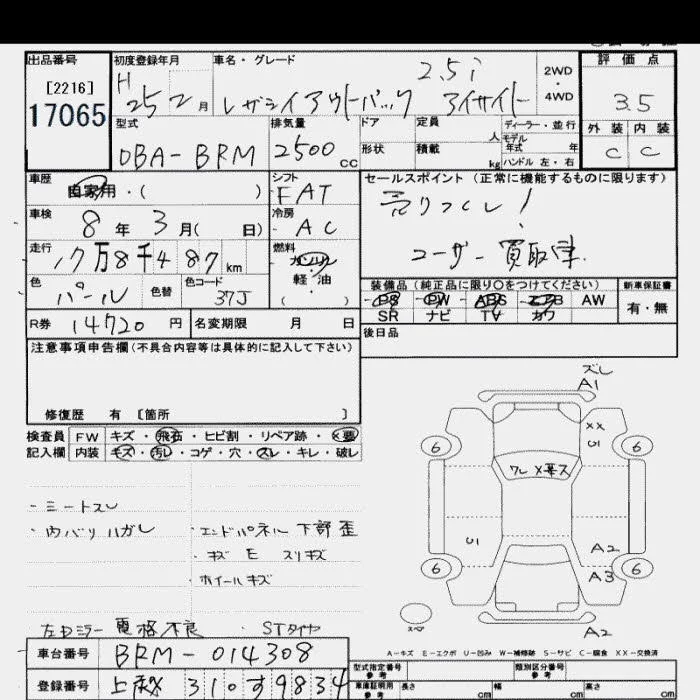 出品番号
[2216]
17065
初度登録年月
H 25 2 月
車名・グレード
2.5i
レガシイアウトバック アイサイト
2WD
・
4WD
評価点
3.5
外装 内装
C C
型式
DBA-BRM
排気量
2500 cc
ドア
形状
定員 人
積載 kg
ディーラー・並行
モデル
年式 年
ハンドル 左・右
車歴
自家用・( )
シフト
FAT
車検
8 年 3 月( 日)
冷房
AC
走行
17万8千487 km
燃料
ガソリン
軽・油
( )
色
パール
色替
色コード
37J
R券 14720 円
名変期限 月 日
セールスポイント (正常に機能するものに限ります)
売りつくし!
ユーザー買取車.
装備品(純品に限り○をつけてください)
PS PW ABS エアB AW
SR ナビ TV カワ
新車保証書
有・無
後日品
注意事項申告欄(不具合内容等は具体的に記入して下さい)
修復歴 有 [箇所 ]
検査員
記入欄
FW キズ・飛石・ヒビ割・リペア跡・X要
内装 キズ・汚レ・コゲ・穴・スレ・キレ・破レ
・シートスレ
・内バリハガレ
・エンドパネル下部歪
・キズ E スリキズ
・ホイールキズ
左Dミラー電格不良 ・STタイヤ
車台番号 BRM-014308
登録番号
310す9834
ズレ
A1
XX
U1
6
6
U1
A2
6
6
A3
スペア
A2
A-キズ E-エクボ U-凹み W-補修跡 S-サビ C-腐食 XX-交換済
型式指定番号
参考
類別区分番号
参考
車庫証明用
参考
長さ cm
幅 cm
高さ cm